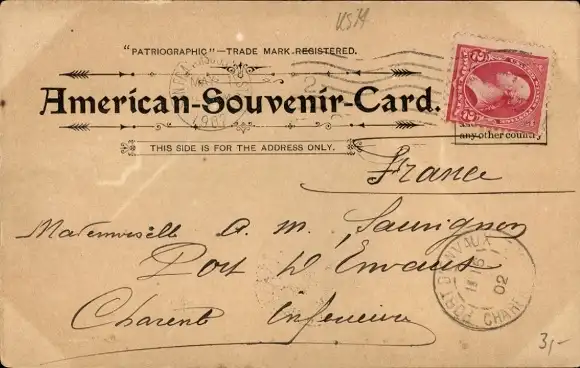 KS 74
"PATRIOGRAPHIC"—TRADE MARK REGISTERED.
American-Souvenir-Card.
THIS SIDE IS FOR THE ADDRESS ONLY.
any other country
France
Mademoiselle A. M. Sauvignon
Port D'Envaux
Charente Inférieure
PORT D'ENVAUX
15
02
CHAR
3,-